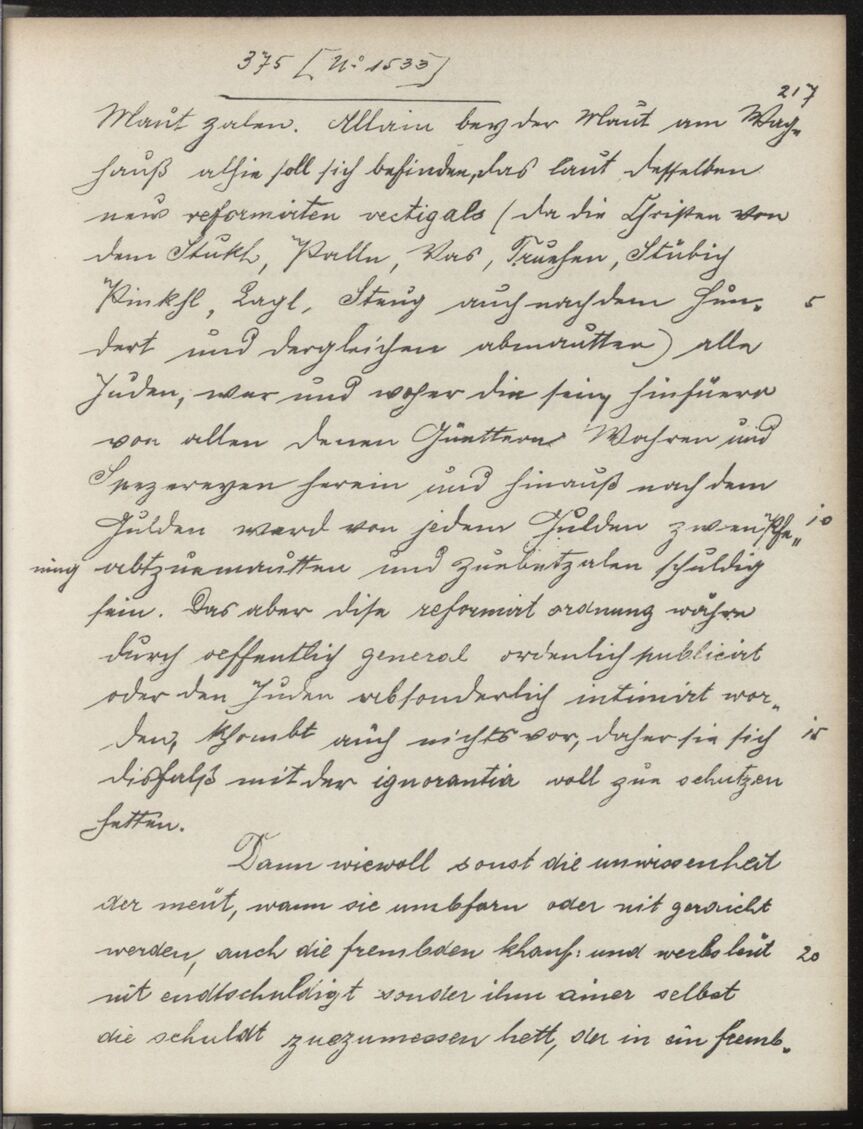 375 [No 1533]
217
Maut zalen. Allain bey der Maut am Wag=
hauß alhie soll sich befinden, das laut desselben
new reformirten vectigals (da die Christen von
dem Stukh, Palln, Vas, Truehen, Stübich
Pinkhl, Lagl, Steug auch nach dem hun= 5
dert und dergleichen abmautten) alle
Juden, wer und woher die sein, hinfüero
von allen denen Güettern Wahren und
Spezereyen herein und hinauß nach dem
Gulden werd von jedem Gulden zwen Phe= 10
ning abtzuemautten und zuebetzalen schuldig
sein. Das aber dise reformirt ordnung währe
durch oeffentlich general ordenlich publicirt
oder den Juden absonderlich intimirt wor=
den, khombt auch nichts vor, daher sie sich 15
disfalß mit der ignorantia woll zue schutzen
hetten.
Dann wiewoll sonst die unwissenheit
der meüt, wann sie umbfarn oder nit gereicht
werden, auch die frembden khauf: und werbsleüt 20
nit endtschuldigt sonder ihm ainer selbst
die schuldt zuezumessen hett, der in ein fremb=